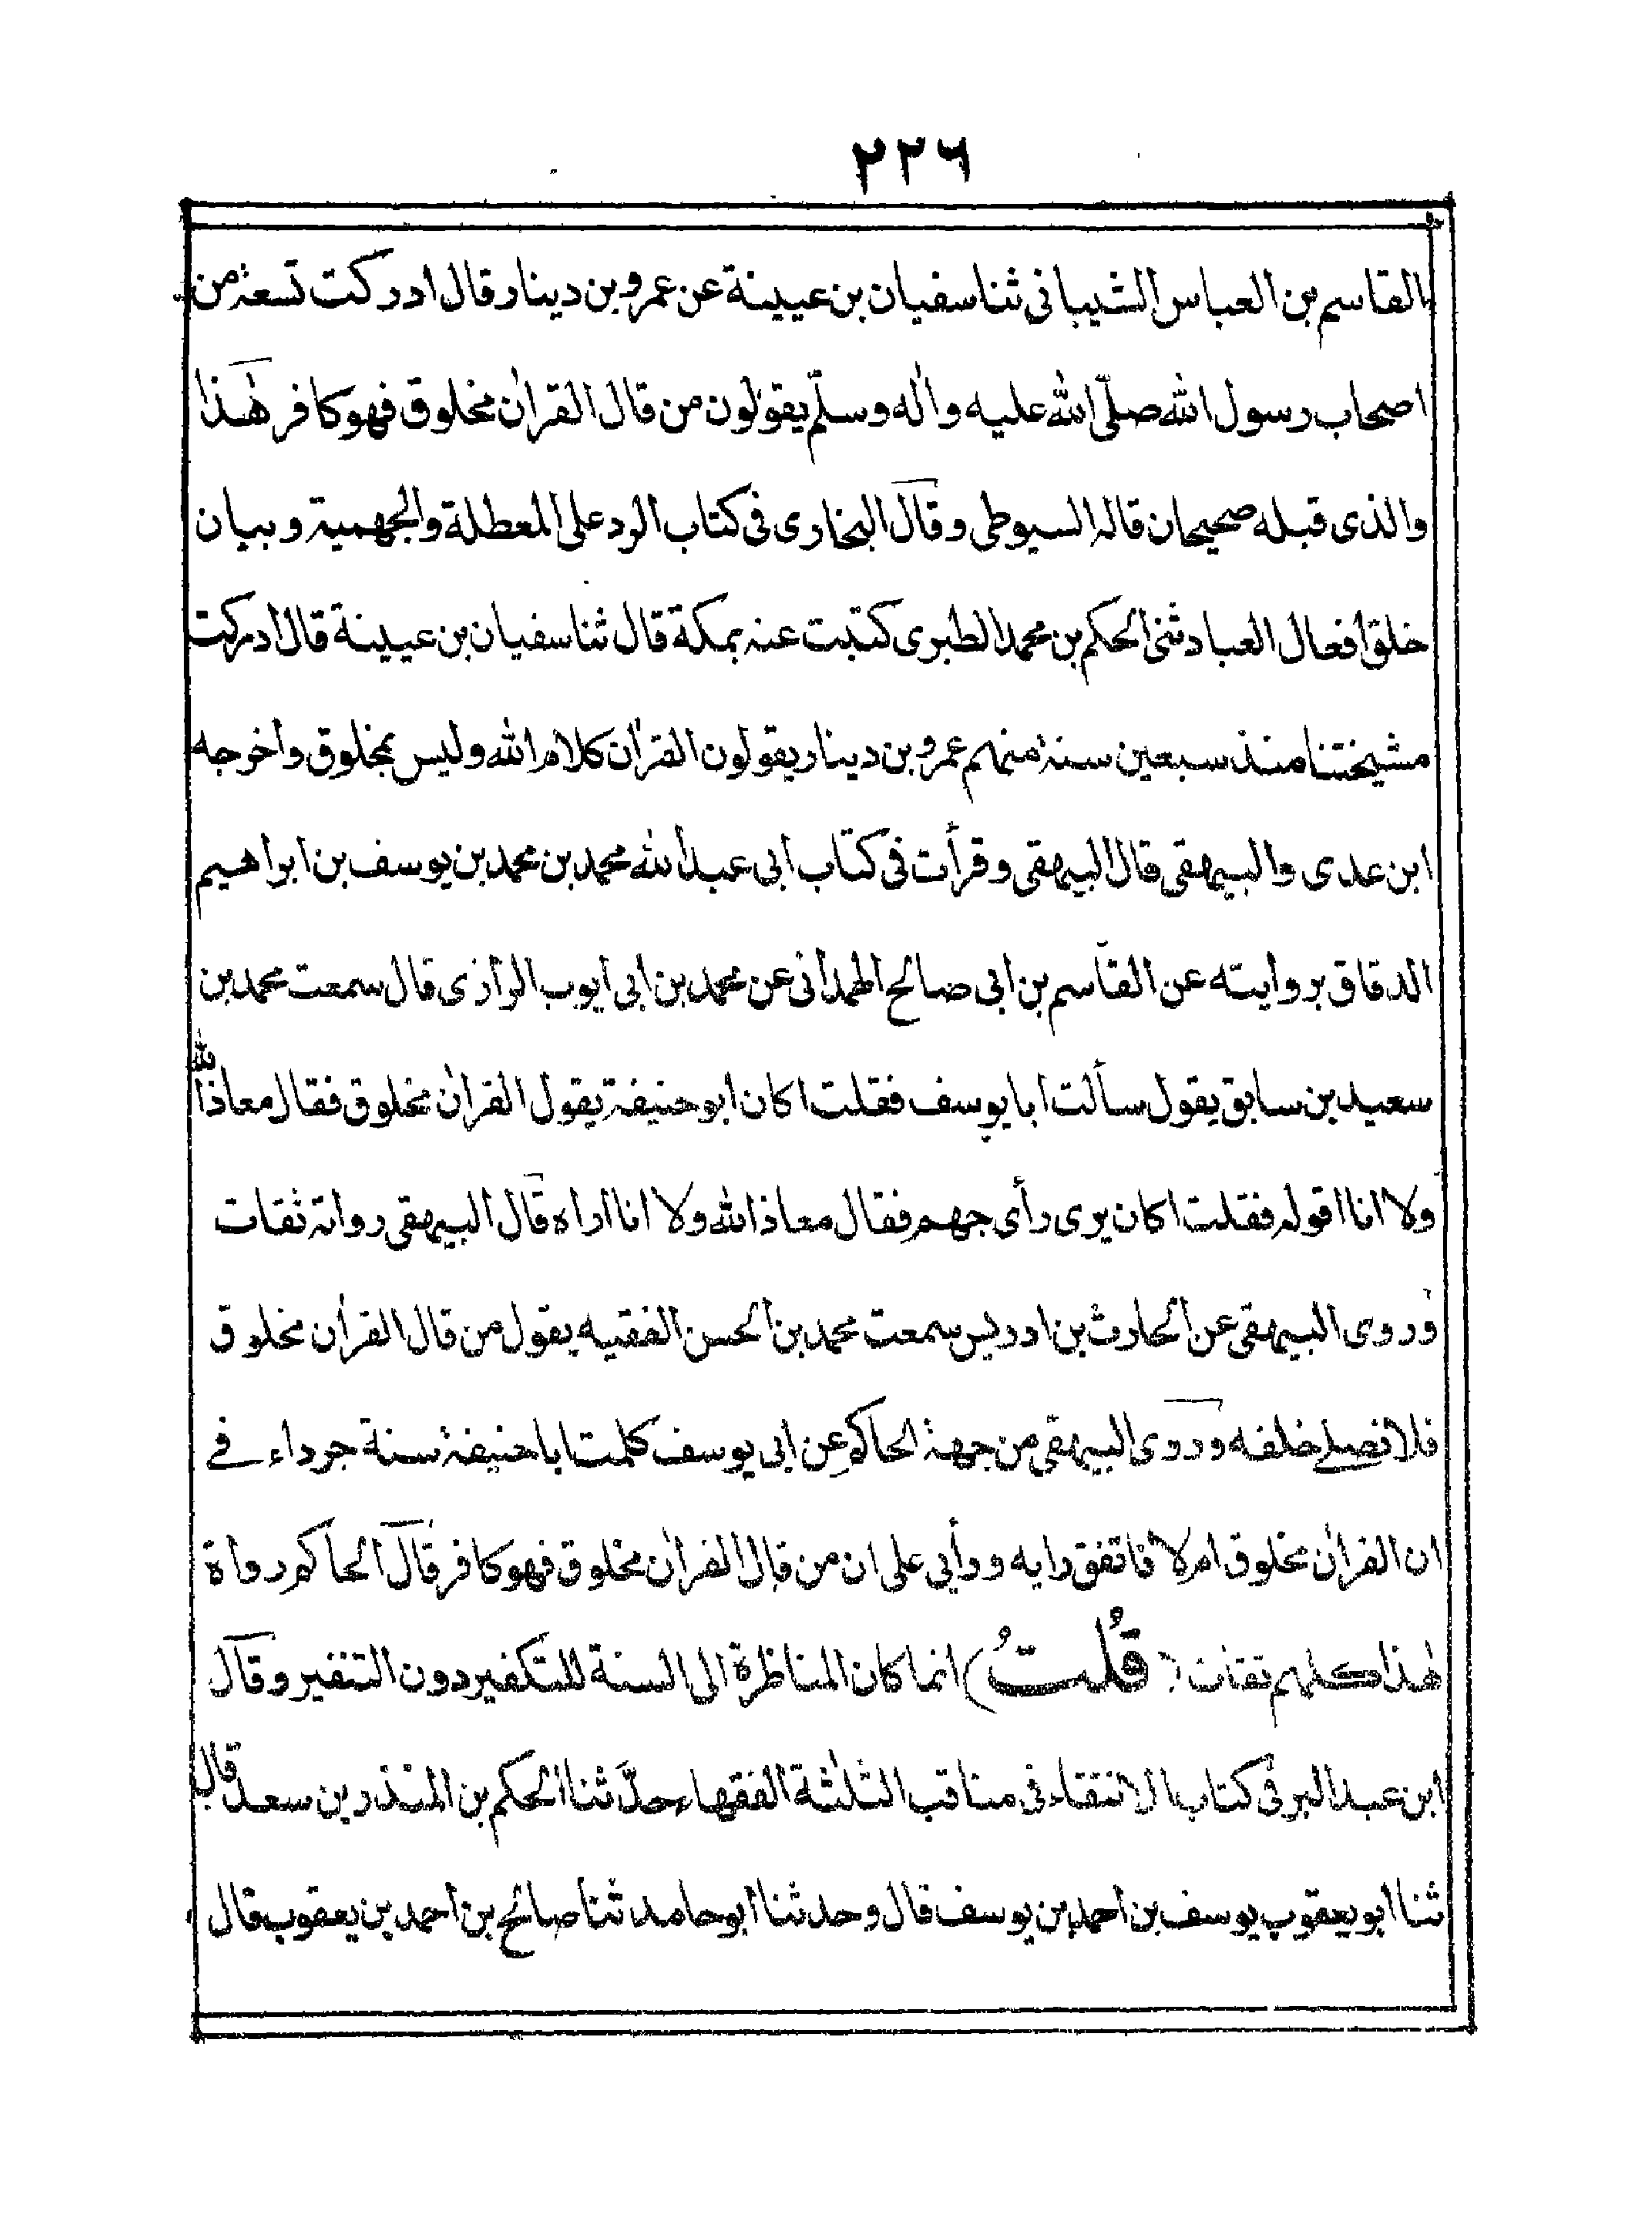 ٢٢٦
القاسم بن العباس الشيبانى ثنا سفيان بن عيينة عن عمرو بن دينار قال ادركت تسعة من
اصحاب رسول الله صلّى الله عليه واٰله وسلّم يقولون من قال القراٰن مخلوق فهو كافر هٰذا
والذى قبله صحيحان قاله السيوطى وقال البخارى فى كتاب الرد على المعطلة والجهمية وبيان
خلق افعال العباد ثنى الحكم بن محمد الطبرى كتبت عنه بمكة قال ثنا سفيان بن عيينة قال ادركت
مشيختنا منذ سبعين سنة منهم عمرو بن دينار يقولون القراٰن كلام الله وليس بمخلوق واخرجه
ابن عدى والبيهقى قال البيهقى وقرأت فى كتاب ابى عبد الله محمد بن محمد بن يوسف بن ابراهيم
الدقاق بروايته عن القاسم بن ابى صالح الهمدانى عن محمد بن ابى ايوب الرازى قال سمعت محمد بن
سعيد بن سابق يقول سألت ابا يوسف فقلت اكان ابو حنيفة يقول القراٰن مخلوق فقال معاذ الله
ولا انا اقوله فقلت اكان يرى رأى جهم فقال معاذ الله ولا انا اراه قال البيهقى رواته ثقات
وروى البيهقى عن الحارث بن ادريس سمعت محمد بن الحسن الفقيه يقول من قال القراٰن مخلوق
فلا نصلے خلفه وروى البيهقى من جهة الحاكم عن ابى يوسف كلمت ابا حنيفة سنة جرداء فے
ان القراٰن مخلوق ام لا فاتفق رايه ورأيى على ان من قال القراٰن مخلوق فهو كافر قال الحاكم رواة
هٰذا كلهم ثقات (قُلتُ) انما كان المناظرة الى السنة للتكفير دون التنفير وقال
ابن عبد البر فى كتاب الانتقاء فى مناقب الثلٰثة الفقهاء حدّثنا الحكم بن المنذر بن سعد قال
ثنا ابو يعقوب يوسف بن احمد بن يوسف قال وحدثنا ابو حامد ثنا صالح بن احمد بن يعقوب قال